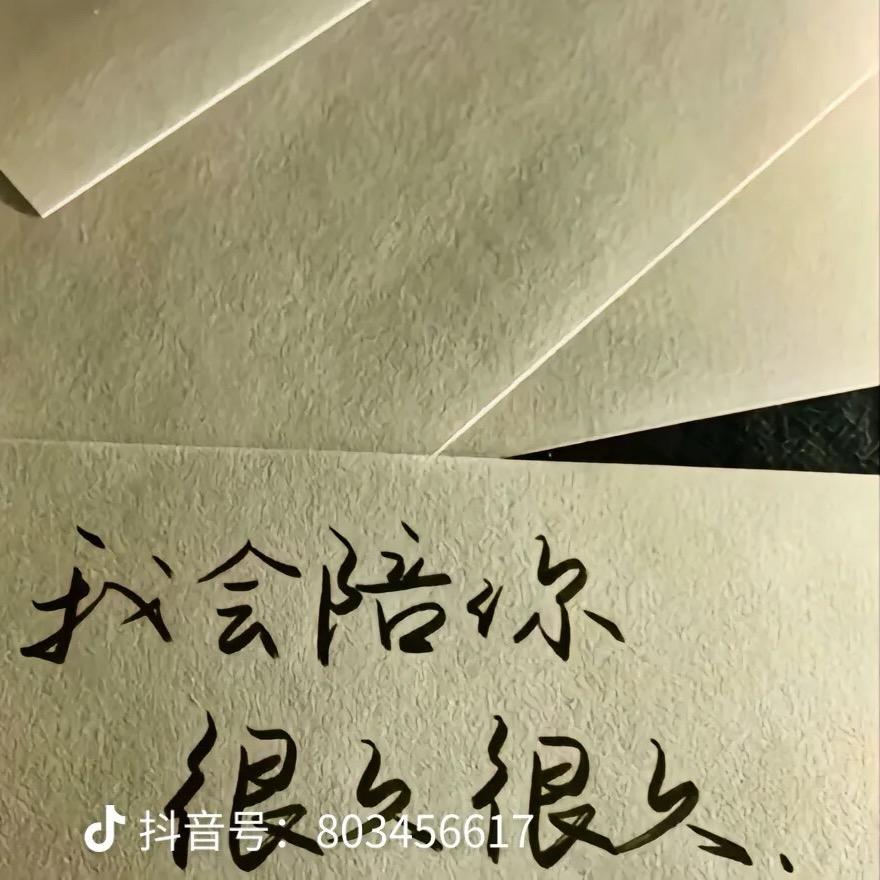 我会陪你
很久很久、
抖音号：803456617